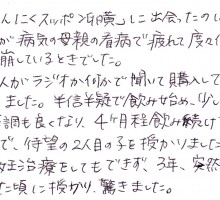 んにくスッポン卵黄」に出会ったのは
が病気の母親の看病で疲れて度々体
崩しているときでした。
人がラジオか何かで聞いて購入して
ました。半信半疑で飲み始め、少し
調も良くなり、4ヶ月程飲み続け
で、待望の2人目の子を授かりました
妊治療をしてもできず、3年、突然
た頃に授かり、驚きました。